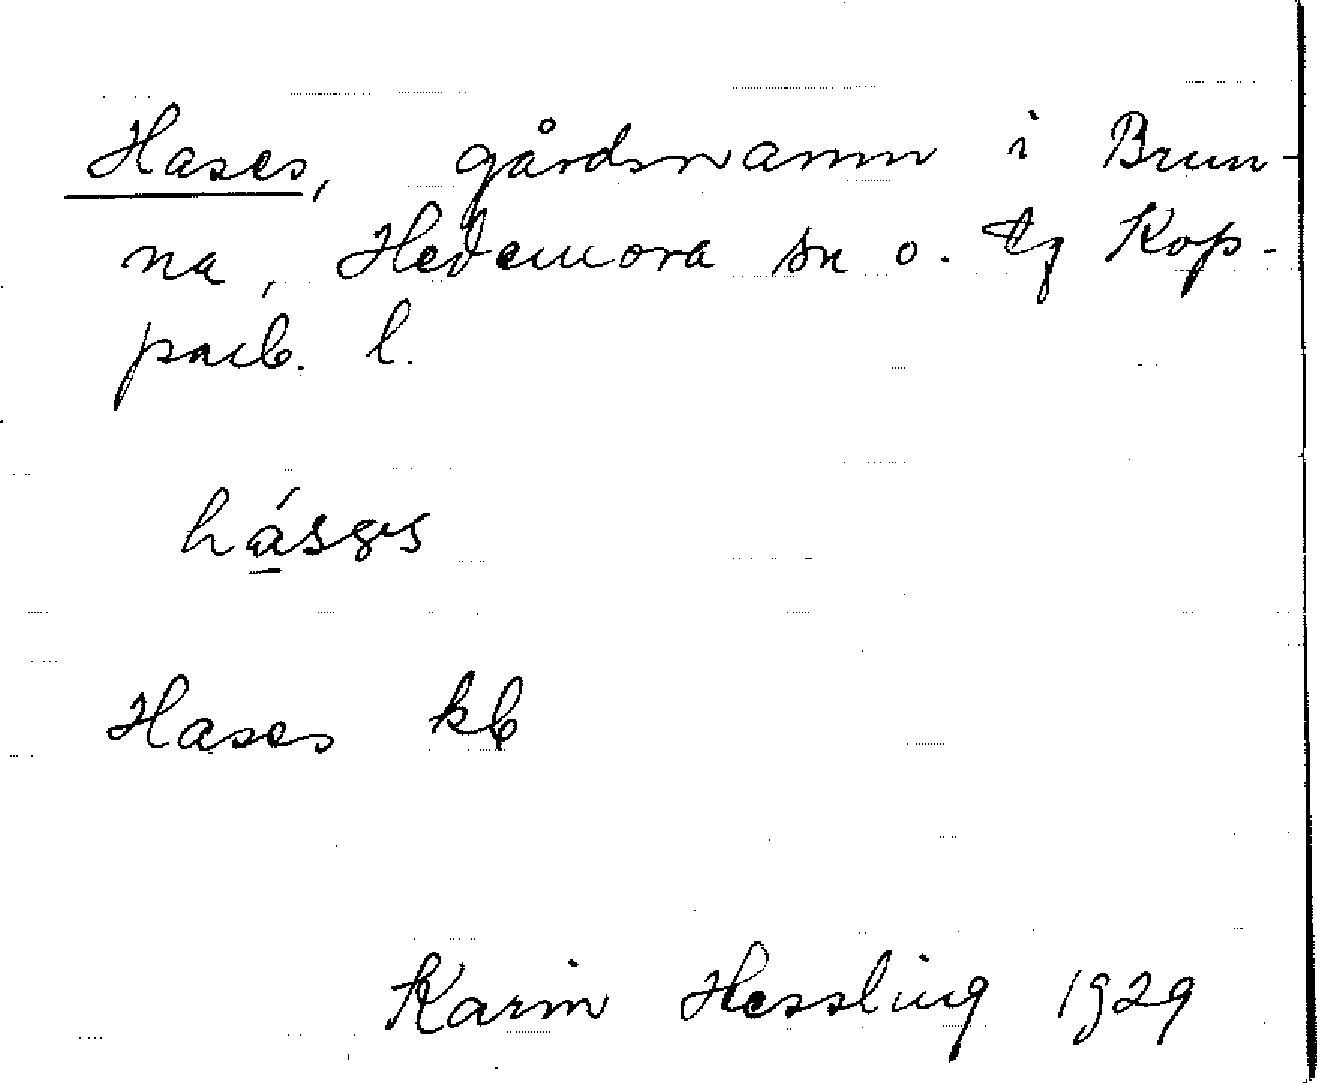 Hases, gårdsnamn i Brun-
na, Hedemora sn o. tg Kop-
parb. l.
Hases kb
Karin Hessling 1929